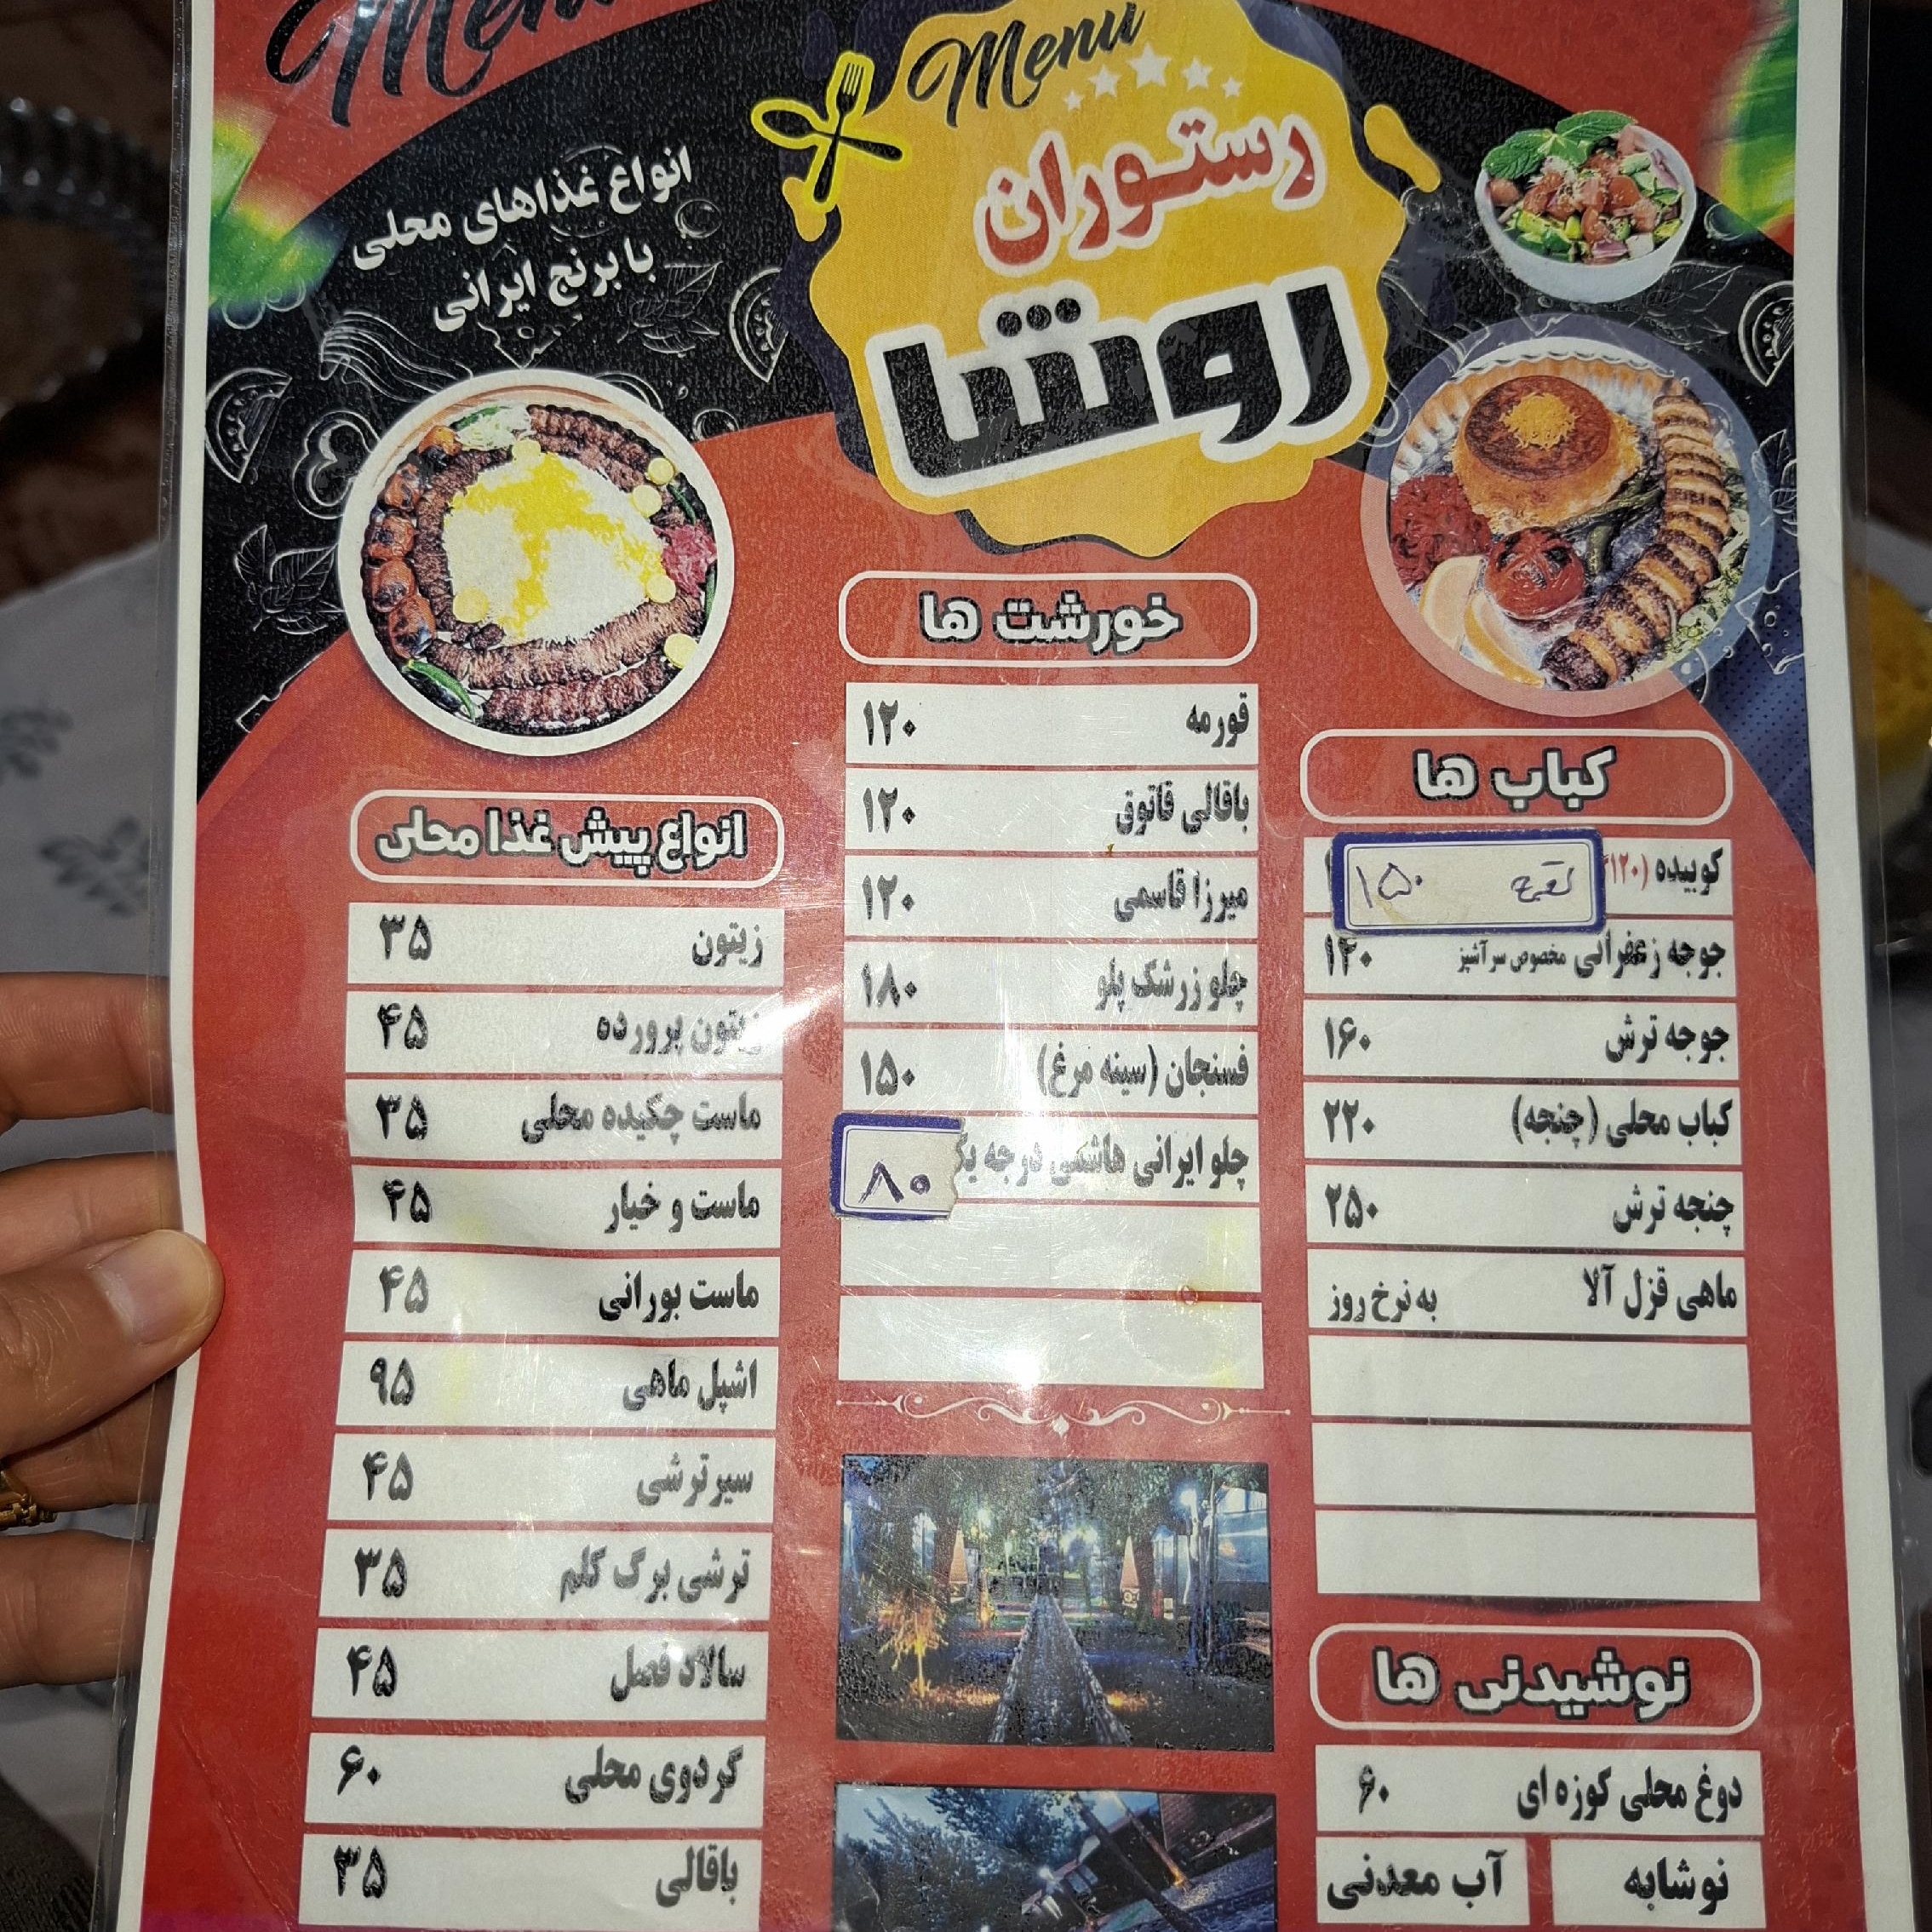 Menu
Menu
رستوران
روشا
انواع غذاهای محلی
با برنج ایرانی
کباب ها
کوبیده (۱۲۰
۱۵۰
جوجه زعفرانی مخصوص سرآشپز ۱۴۰
جوجه ترش ۱۶۰
کباب محلی (چنجه) ۲۲۰
چنجه ترش ۲۵۰
ماهی قزل آلا به نرخ روز
نوشیدنی ها
دوغ محلی کوزه ای ۶۰
نوشابه آب معدنی
خورشت ها
قورمه ۱۲۰
باقالی قاتوق ۱۲۰
میرزا قاسمی ۱۲۰
چلو زرشک پلو ۱۸۰
فسنجان (سینه مرغ) ۱۵۰
چلو ایرانی هاشمی درجه یک ۸۰
انواع پیش غذا محلی
زیتون ۳۵
زیتون پرورده ۴۵
ماست چکیده محلی ۳۵
ماست و خیار ۴۵
ماست بورانی ۴۵
اشپل ماهی ۹۵
سیرترشی ۴۵
ترشی برگ کلم ۳۵
سالاد فصل ۴۵
گردوی محلی ۶۰
باقالی ۳۵